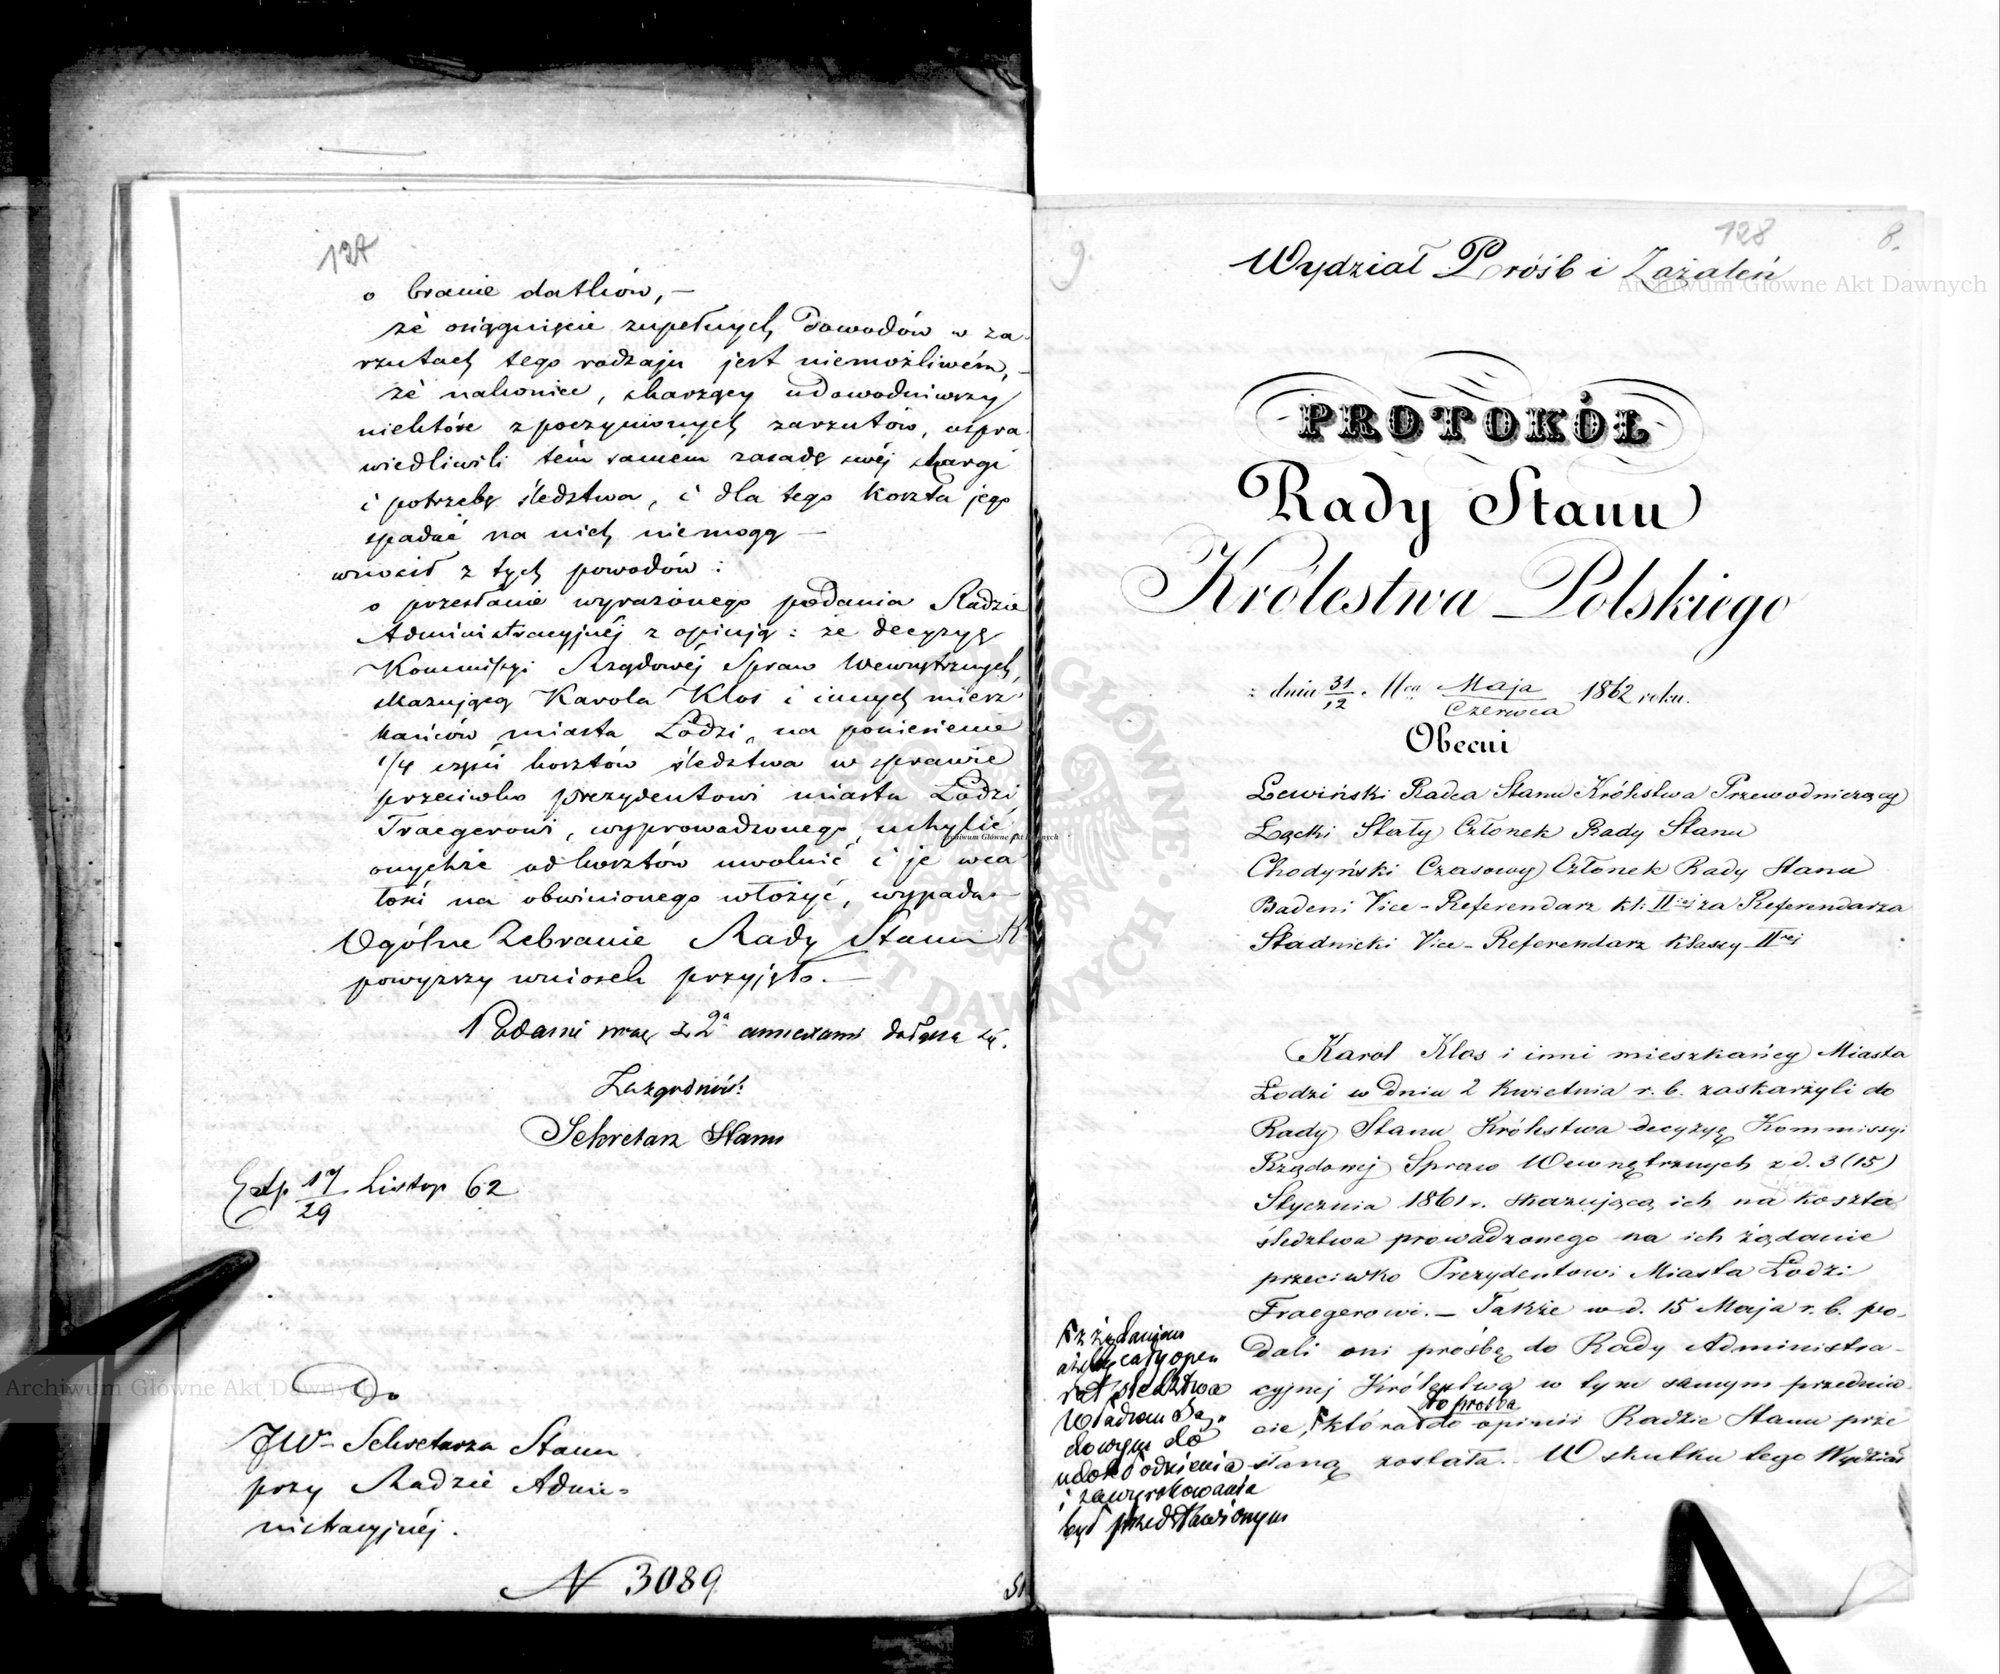 127
o branie datków, —
że osiągnięcie zupełnych dowodów w za-
rzutach tego rodzaju jest niemożliwém, —
że nakoniec, skarżący udowodniwszy
niektóre z poczynionych zarzutów, uspra-
wiedliwili tém samém zasadę swéj skargi
i potrzebę śledztwa, i dla tego koszta jego
spadać na nich niemogą —
wnosił z tych powodów :
o przesłanie wyrażonego podania Radzie
Administracyjnéj z opinją : że decyzyę
Kommissyi Rządowéj Spraw Wewnętrznych,
skazującą Karola Klos i innych miesz-
kańców miasta Łodzi, na poniesienie
1/4 części kosztów śledztwa w sprawie
przeciwko prezydentowi miasta Łodzi
Traegerowi, wyprowadzonego, uchylić
onychże od kosztów uwolnić i je w ca-
łości na obwinionego włożyć, wypada —
Ogólne Zebranie Rady Stanu K
powyższy wniosek przyjęło. —
Podanie wraz z 2ª annexami dołącza się.
Za zgodność:
Sekretarz Stanu
Exp. 17/29 Listop 62
Do
JW- Sekretarza Stanu
przy Radzie Admi-
nistracyjnéj.
N 3089
9.
128
8.
Wydział Próśb i Zażaleń
PROTOKÓŁ
Rady Stanu
Królestwa Polskiego
z dnia 31/12 Maja/Czerwca 1862 roku.
Obecni
Lewiński Radca Stanu Królestwa Przewodniczący
Łącki Stały Członek Rady Stanu
Chodyński Czasowy Członek Rady Stanu
Badeni Vice-Referendarz kl: II:ej za Referendarza
Stadnicki Vice-Referendarz klassy IIej
Karol Klos i inni mieszkańcy Miasta
Łodzi w dniu 2 Kwietnia r. b. zaskarżyli do
Rady Stanu Królestwa decyzyę Kommissyi
Rządowej Spraw Wewnętrznych z d. 3 (15)
Stycznia 1861 r. skazującą ich na koszta
śledztwa prowadzonego na ich żądanie
przeciwko Prezydentowi Miasta Łodzi
Fraegerowi. — Także w d. 15 Maja r. b. po-
dali oni prośbę do Rady Administra-
cyjnej Królestwa w tym samym przedmio-
cie, która to prośba do opinii Radzie Stanu prze
słaną została. W skutku tego Wydział
z żądaniem
ażeby cały ope
rat śledztwa
Władzom Są-
dowym do
udokładnienia
i zawyrokowania
był przedstawionym
Archiwum Główne Akt Dawnych
Archiwum Główne Akt Dawnych
Archiwum Główne Akt Dawnych